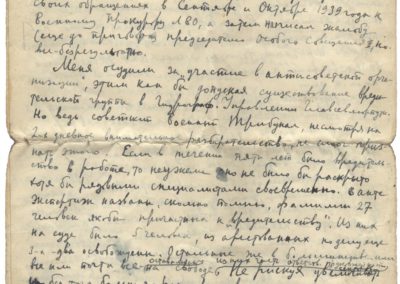 своих обращениях в Сентябре и Октябре 1939 года к
Военному Прокурору ЛВО, а затем написал жалобу
(еще до приговора) председателю Особого Совещания,
но безрезультатно.
Меня осудили за участие в антисоветской орга-
низации, этим как бы допуская существование вреди-
тельской группы в Гидрограф. Управлении Главсевморпути.
Но ведь советский Военный Трибунал, несмотря на
2-х дневное разбирательство, не смог приз-
нать этого. Если в течении пяти лет было вредитель-
ство в работе, то неужели оно не было бы раскрыто
хотя бы рядовыми специалистами своевременно. В акте
Экспертизы названы, сколько помню, фамилии 27
человек якобы причастных к вредительству". Из них
на суде было 5 человек, из арестованных по делу еще
два освобождены. Остальные же в большинстве или
все на свободе. Не рискуя